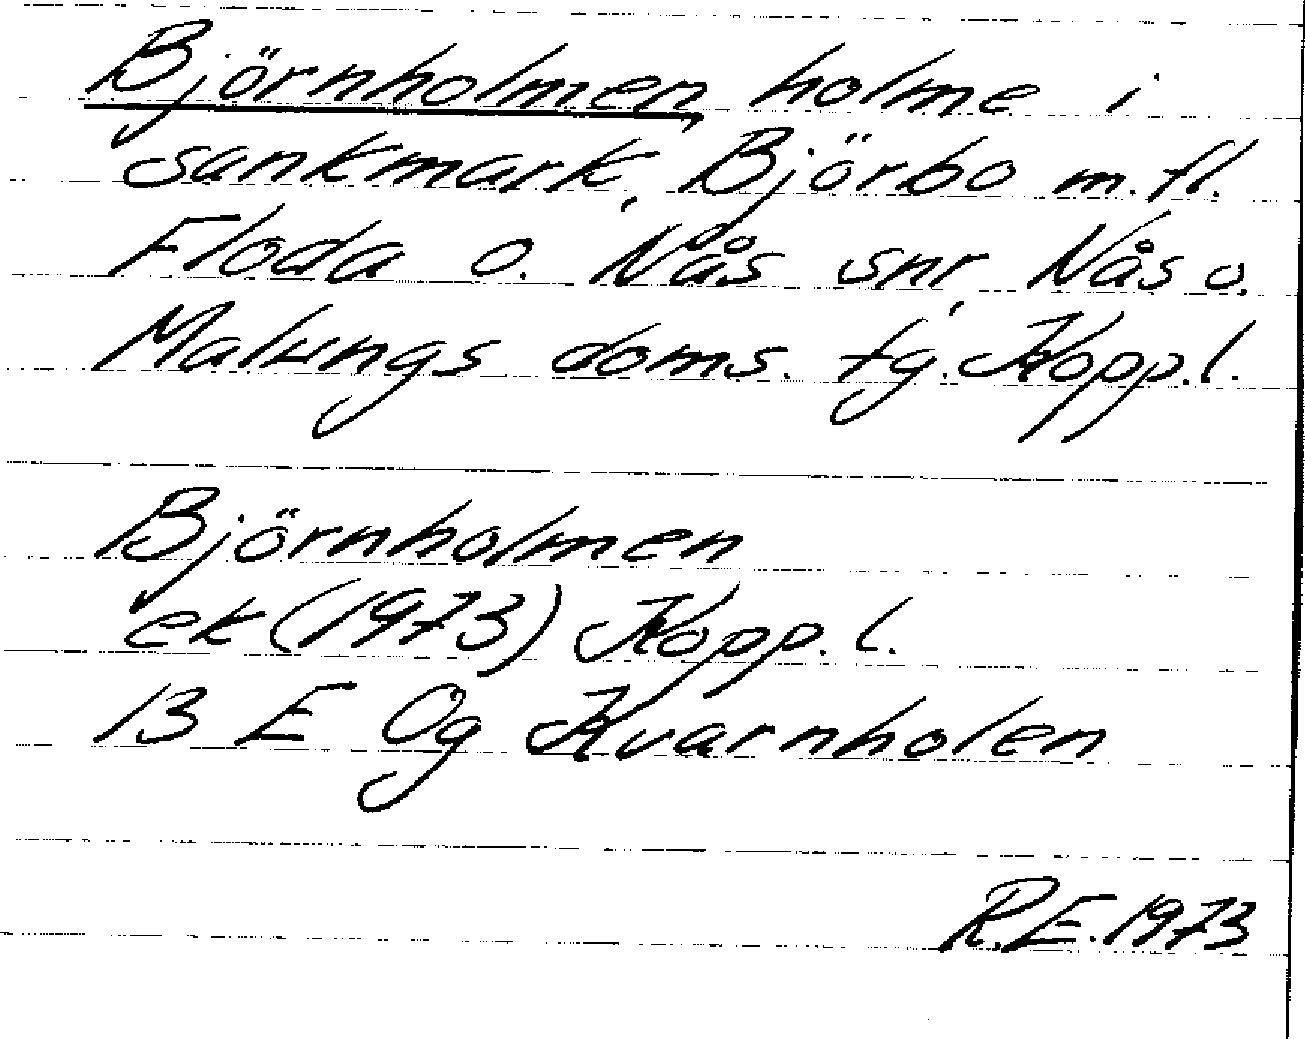 Björnholmen, holme i
sankmark, Björbo m.fl.
Floda o. Nås snr, Nås o.
Malungs doms. tg. Kopp.l.
Björnholmen
ek (1973) Kopp. l.
13 E Og Kvarnholen
R.E. 1973